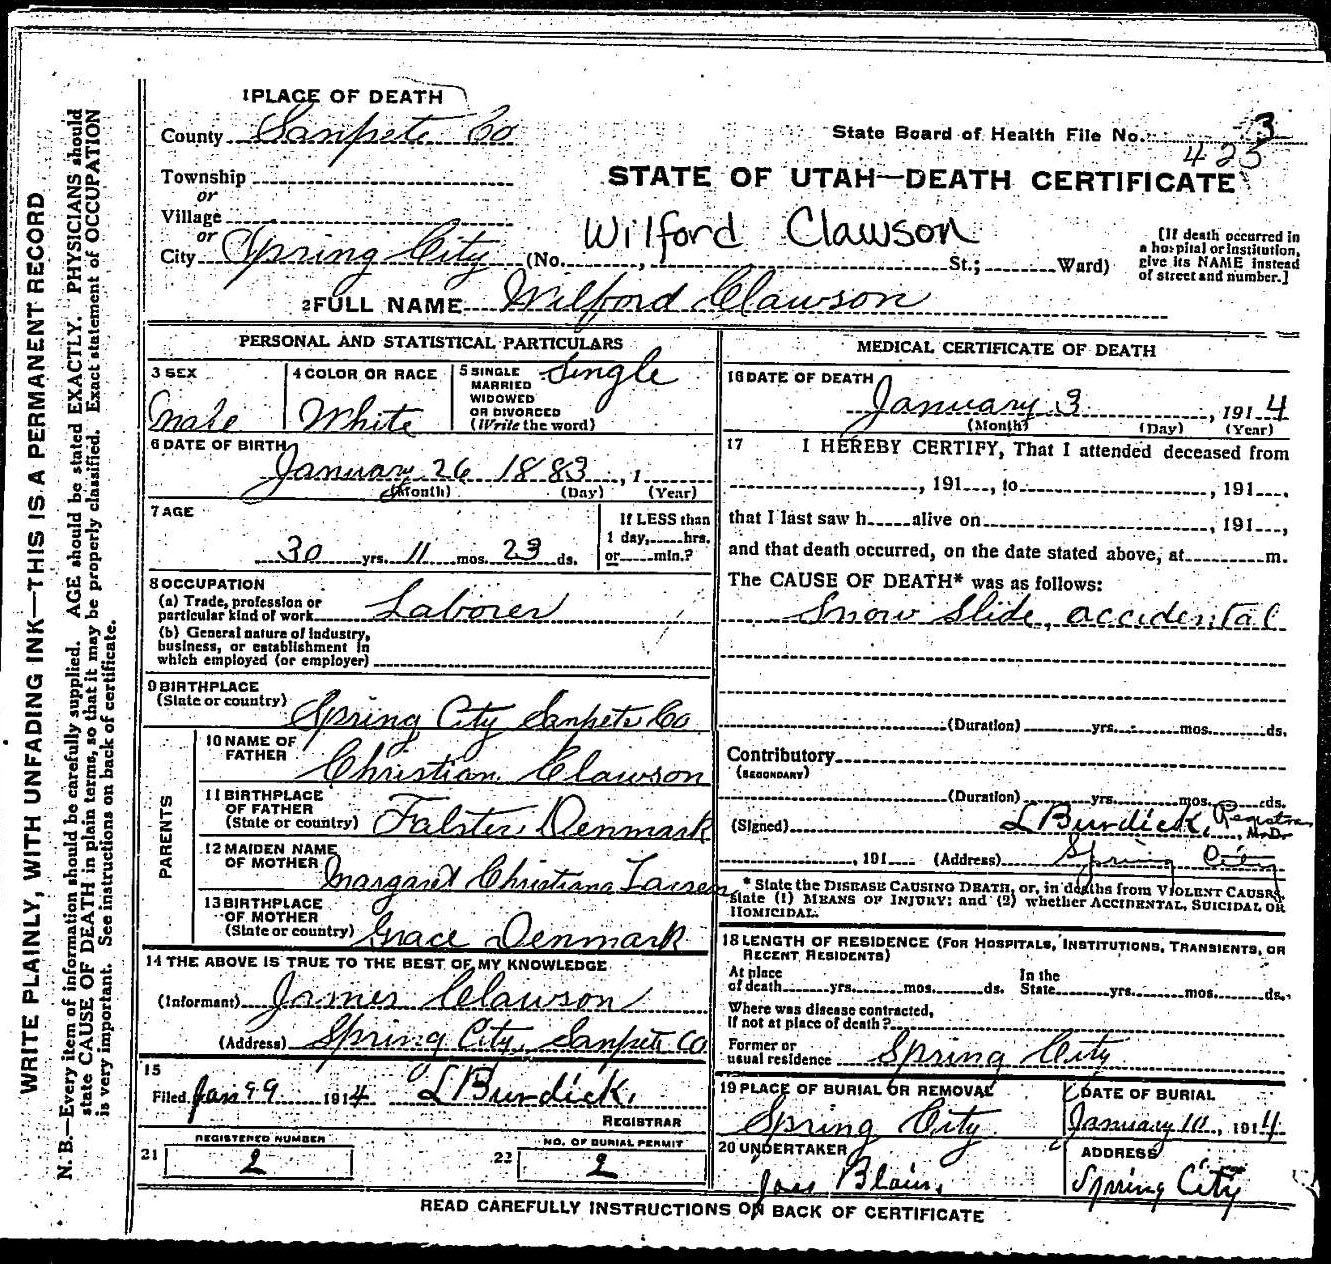 1 PLACE OF DEATH
County Sanpete Co
State Board of Health File No. 3
425
Township
or
Village
or
City Spring City (No. , St.; Ward)
STATE OF UTAH—DEATH CERTIFICATE
Wilford Clawson
[If death occurred in
a hospital or institution,
give its NAME instead
of street and number.]
2 FULL NAME Wilford Clawson
PERSONAL AND STATISTICAL PARTICULARS
3 SEX
Male
4 COLOR OR RACE
White
5 SINGLE
MARRIED
WIDOWED
OR DIVORCED
(Write the word)
Single
6 DATE OF BIRTH
January 26 1883, 1
(Month) (Day) (Year)
7 AGE
30 yrs. 11 mos. 23 ds.
If LESS than
1 day, hrs.
or min.?
8 OCCUPATION
(a) Trade, profession or
particular kind of work Laborer
(b) General nature of industry,
business, or establishment in
which employed (or employer)
9 BIRTHPLACE
(State or country) Spring City Sanpete Co
PARENTS
10 NAME OF
FATHER Christian Clawson
11 BIRTHPLACE
OF FATHER
(State or country) Falster Denmark
12 MAIDEN NAME
OF MOTHER Margaret Christiana Larsen
13 BIRTHPLACE
OF MOTHER
(State or country) Grace Denmark
14 THE ABOVE IS TRUE TO THE BEST OF MY KNOWLEDGE
(Informant) James Clawson
(Address) Spring City, Sanpete Co
15
Filed Jan 1914 L Burdick,
REGISTRAR
21 REGISTERED NUMBER
2
22 NO. OF BURIAL PERMIT
2
MEDICAL CERTIFICATE OF DEATH
16 DATE OF DEATH
January 3, 1914
(Month) (Day) (Year)
17 I HEREBY CERTIFY, That I attended deceased from
, 191 , to , 191 ,
that I last saw h alive on , 191 ,
and that death occurred, on the date stated above, at m.
The CAUSE OF DEATH* was as follows:
Snow Slide, accidental
(Duration) yrs. mos. ds.
Contributory
(SECONDARY)
(Duration) yrs. mos. ds.
(Signed) L Burdick, Registrar M. D.
, 191 (Address) Spring City
* State the DISEASE CAUSING DEATH, or, in deaths from VIOLENT CAUSES,
state (1) MEANS OF INJURY; and (2) whether ACCIDENTAL, SUICIDAL OR
HOMICIDAL.
18 LENGTH OF RESIDENCE (FOR HOSPITALS, INSTITUTIONS, TRANSIENTS, OR
RECENT RESIDENTS)
At place
of death yrs. mos. ds.
In the
State yrs. mos. ds.,
Where was disease contracted,
if not at place of death?
Former or
usual residence Spring City
19 PLACE OF BURIAL OR REMOVAL
Spring City
DATE OF BURIAL
January 1914
20 UNDERTAKER
Blain,
ADDRESS
Spring City
READ CAREFULLY INSTRUCTIONS ON BACK OF CERTIFICATE
WRITE PLAINLY, WITH UNFADING INK—THIS IS A PERMANENT RECORD
N. B.—Every item of information should be carefully supplied. AGE should be stated EXACTLY. PHYSICIANS should
state CAUSE OF DEATH in plain terms, so that it may be properly classified. Exact statement of OCCUPATION
is very important. See instructions on back of certificate.